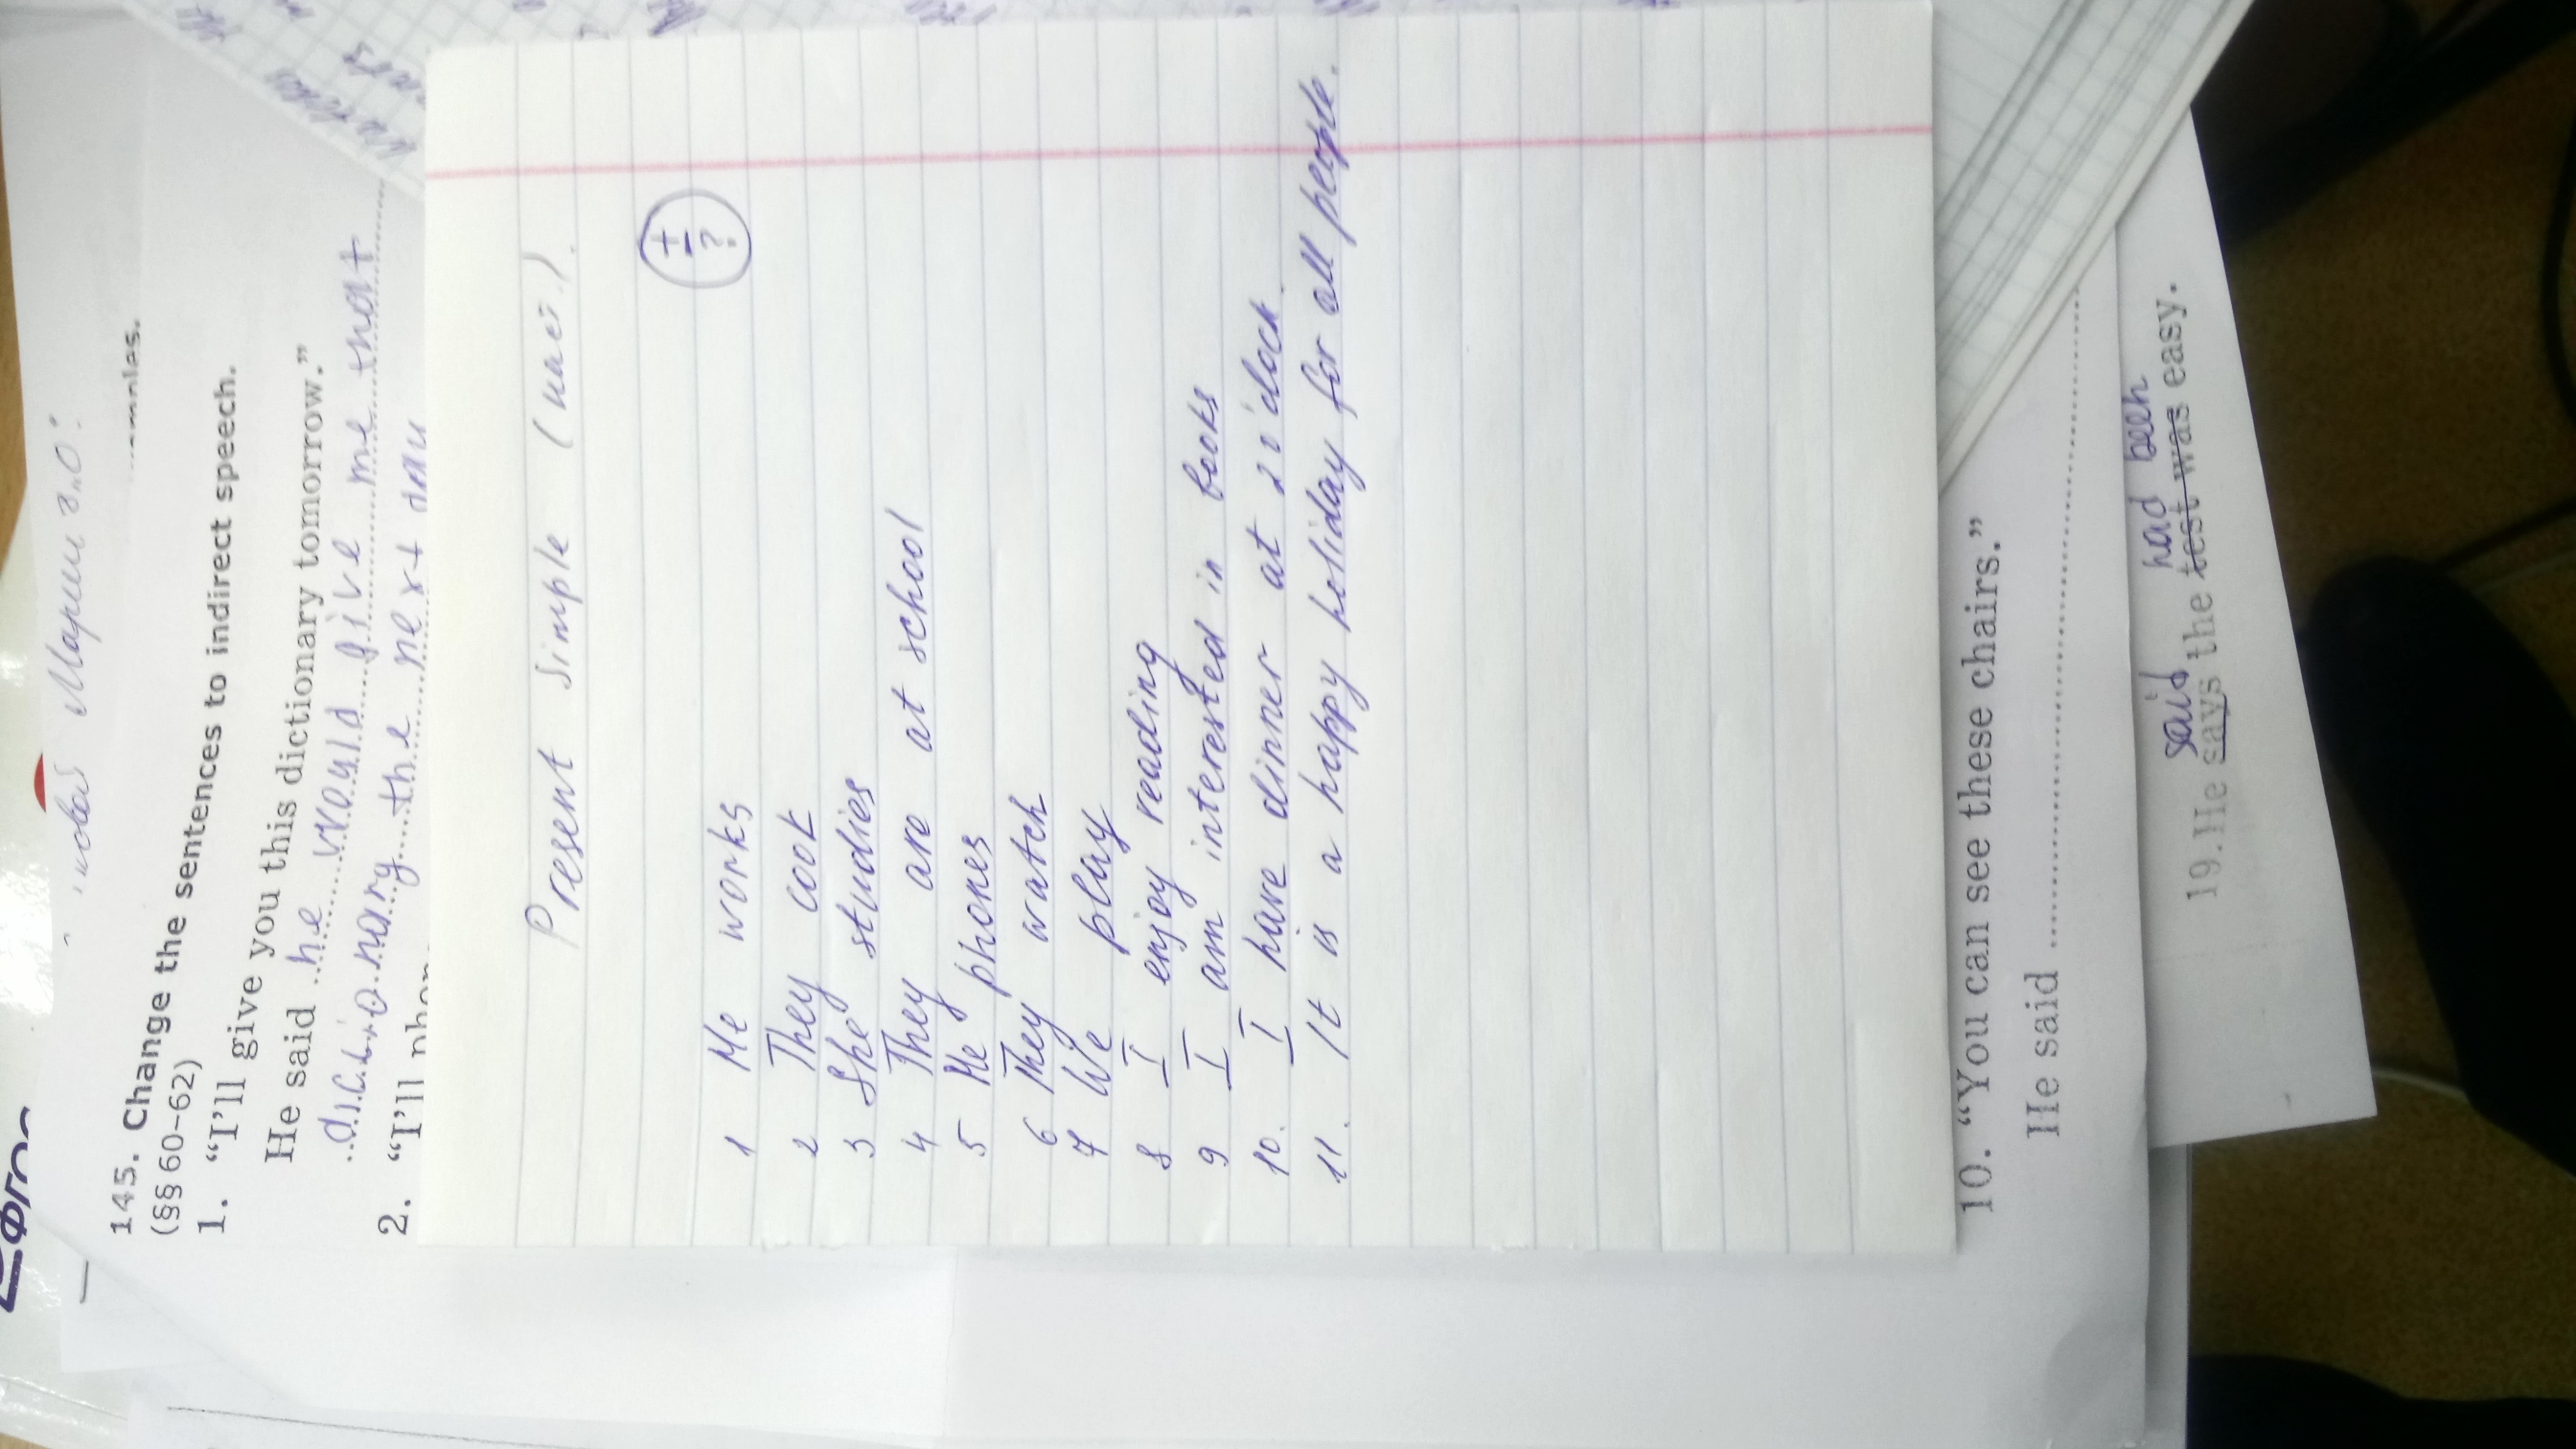 145. Change the sentences to indirect speech.
(§§ 60–62)
1. “I’ll give you this dictionary tomorrow.”
He said he would give me that
dictionary the next day
2. “I’ll phon
Present Simple (наст.).
+
–
?
1 He works
2 They cook
3 She studies
4 They are at school
5 He phones
6 They watch
7 We play
8 I enjoy reading
9 I am interested in books
10. I have dinner at 2 o'clock.
11. It is a happy holiday for all people.
10. “You can see these chairs.”
He said
said had been
19. He says the test was easy.